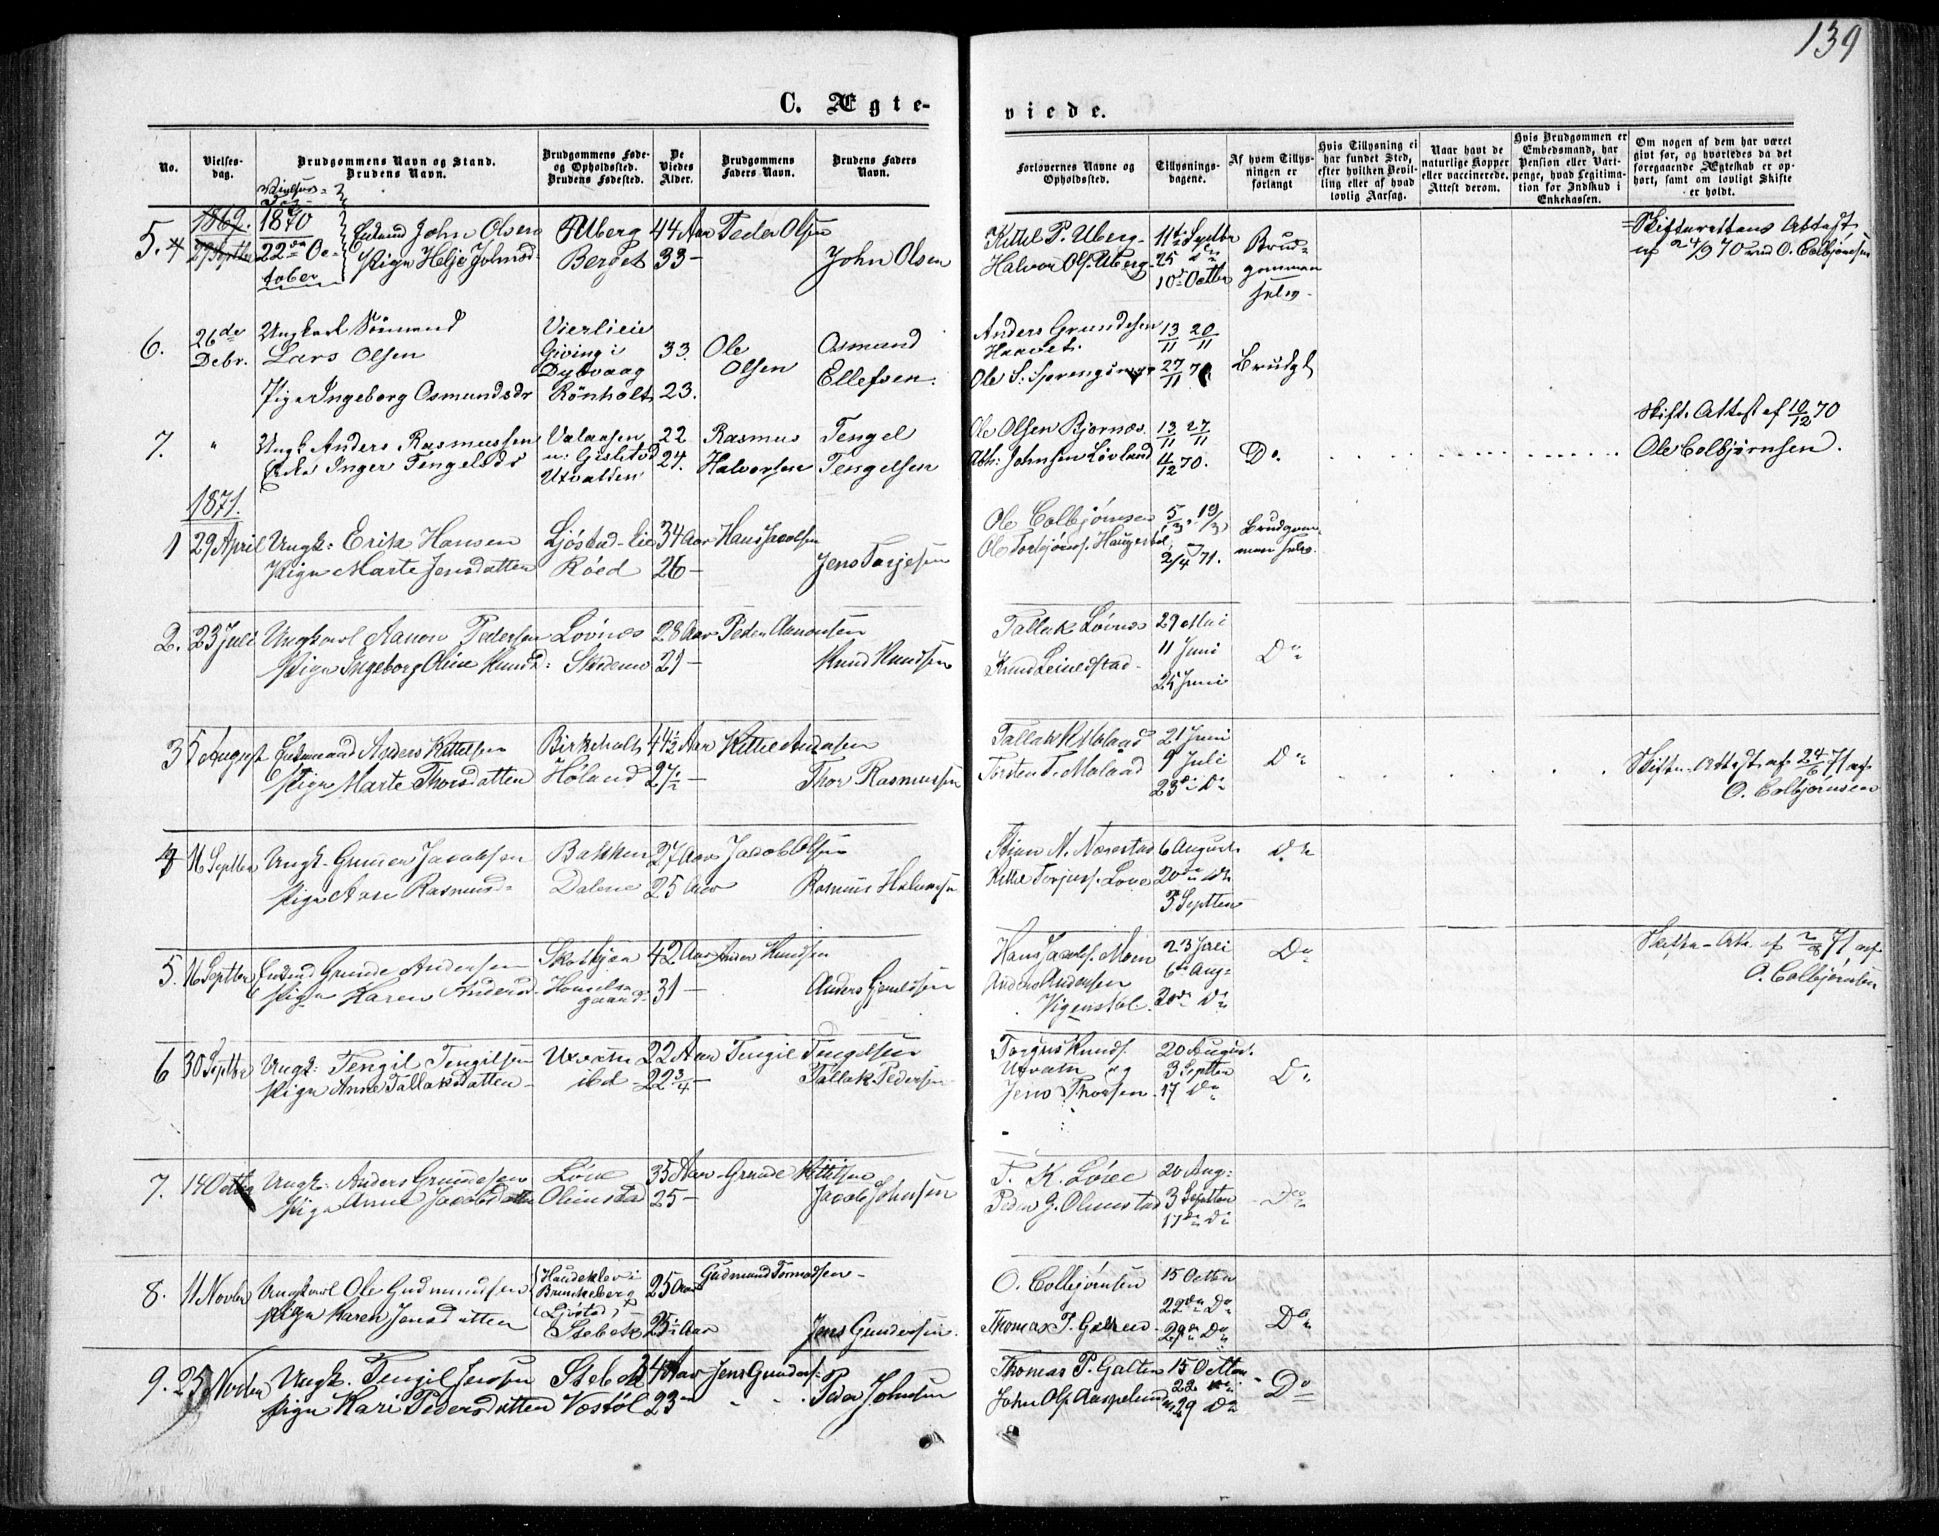 139
C. Ægte-
viede.
No.
Vielses-
dag.
Brudgommens Navn og Stand.
Brudens Navn.
Brudgommens Føde-
og Opholdssted.
Brudens Fødested.
De
Viedes
Alder.
Brudgommens
Faders Navn.
Brudens Faders
Navn.
Forlovernes Navne og
Opholdssted.
Tillysnings-
dagene.
Af hvem Tillys-
ningen er
forlangt
Hvis Tillysning ei
har fundet Sted,
efter hvilken Bevil-
ling eller af hvad
lovlig Aarsag.
Naar havt de
naturlige Kopper
eller vaccinerede.
Attest derom.
Hvis Brudgommen er
Embedsmand, har
Pension eller Vart-
penge, hvad Legitima-
tion for Indskud i
Enkekassen.
Om nogen af dem har været
gift før, og hvorledes da det
foregaaende Ægteskab er op-
hørt, samt om lovligt Skifte
er holdt.
1869. 1870
5. 22de Oc-
tober
John Olsen Uberg 44 Aar Peder Olsen
Pige Helje Johnsd Berget 33 - John Olsen
Kittel P. Uberg - 11te Septbr Brud-
Halvor Ols. Uberg - 25 Do gommen
10de Octbr selv.
Skifterettens Attest
af 24/9 70 ved O. Colbjørnsen
6. 26de Debr. Ungkarl Sømand
Lars Olsen
Vierlieie
Giving i
Dybvaag 33. Ole Olsen Osmund Ellefsen.
Pige Ingeborg Osmundsdr Rönholt 23.
Anders Grundesen
Haavet. 13/11 20/11
Ole S. Sprengsmyr 27/11 70 Brudgt
7. " Ungk Anders Rasmussen Valaasen 22 Rasmus Halvorsen Tengel Tengelsen
Enke Inger Tengelsdr Utvatten 24.
Ole Olsen Bjørnæs. 13/11 27/11
Johnsen Løvland 4/12 70. Do
Skift. Attest af 10/12 70
Ole Colbjørnsen.
1871.
1 29 April Ungk: Erik Hansen Ljøstad-Eie 34 Aar Hans Jacobsen
Pige Marte Jensdatter Röed 26 - Jens Tarjesen
Ole Colbjørnsen 5/3. 19/3 Brudgom-
Ole Torbjørns. Haugestøl 2/4 71. men selv.
2. 23 Juli Ungkarl Aanon Pedersen Lovnes 28 Aar Peder Aanonsen
Pige Ingeborg Oline Knudsd: 21 - Knud Knudsen
Tallak Lövnes 29 Mai
11 Juni Do
Knud Leivelstad - 25 Juni
3 5 August Enkemand Anders Kittelsen Birkeholt 44½ Aar Kittel Andersen
Pige Marte Thorsdatter Høland 27½ - Thor Rasmussen
Tallak K Molaad 21 Juni
Torsten T. Molaad 9 Juli Do
23de Do
Skifte-Attest af 24/6 71 af
O. Colbjørnsen
4 16 Septbr Ungk. Gunder Jacobsen Bakken 27 Aar Jacob Olsen
Pige Aase Rasmusd: Dalene 25 Aar Rasmus Halvorsen
Stian N. Næsestad 6 August Do
Kittel Torjuss. Løve 20de Do
3 Septbr
5. 16 Septbr Grunde Andersen 42 Aar Anders Knudsen
Pige Karen Andersd. 31 - Anders Gjeruldsen
Hans Jacobs. Moen 23 Juli Do
Anders Andersen 6te Aug:
Vigenstøl. 20de Do
Skifte-Att. af 2/8 71 af
O. Colbjørnsen
6 30 Septbr Ungk: Tengil Tengilsen Utvatn 22 Aar Tengil Tengilsen
Pige Anne Tallaksdatter - ibd 22¾ - Tallak Pedersen
Torjus Knuds. 20 August.
Utvatn og 3 Septbr Do
Jens Thorsen. 17 Do
7. 14 Octbr Ungk: Anders Grundesen Löve 35 Aar Grunde Kittilsen
Pige Anne Jacobsdatter Olimstad 25 - Jacob Johnsen
T. K. Löve 20 Aug:
Peder G. Olimstad 3 Septbr Do
17de Do
8. 11 Novbr Ungkarl Ole Gudmundsen Haudeklev i
Brunkeberg
(Ljøstad) 25 Aar Gudmund Tormodsen -
Pige Karen Jensdatter Stebek 23½ Aar Jens Gundersen.
O. Colbjørnsen 15 Octbr
22de Do
Thomas P. Galten. 29de Do Do
9. 25 Novbr Ungk. Tengil Jensen Stebek 24 Aar Jens Gunders:
Pige Kari Pedersdatter Vestøl 23 Peder Johnsen
Thomas P. Galten 15 Octbr
22 Do Do
John Ols Aaspelund 29 Do